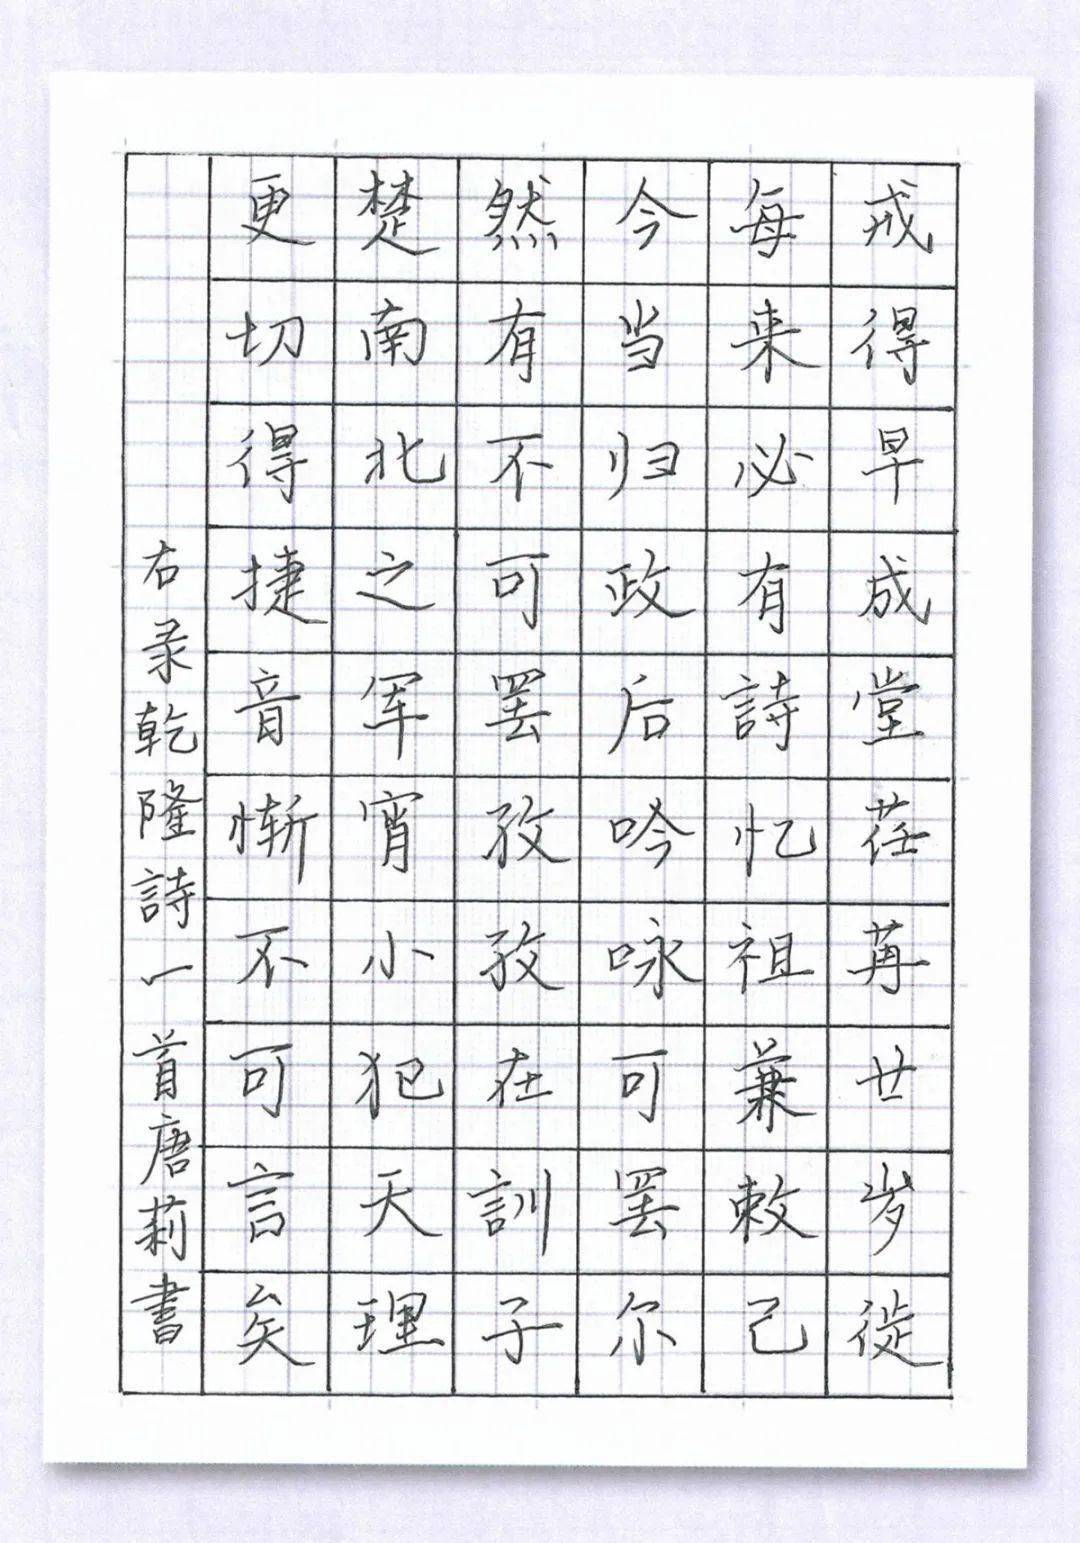 戒得早成堂荏苒廿岁徙
每来必有詩忆祖兼敕己
今当归政后吟咏可罢尔
然有不可罢孜孜在訓子
楚南北之军宵小犯天理
更切得捷音惭不可言矣
右录乾隆詩一首唐莉書